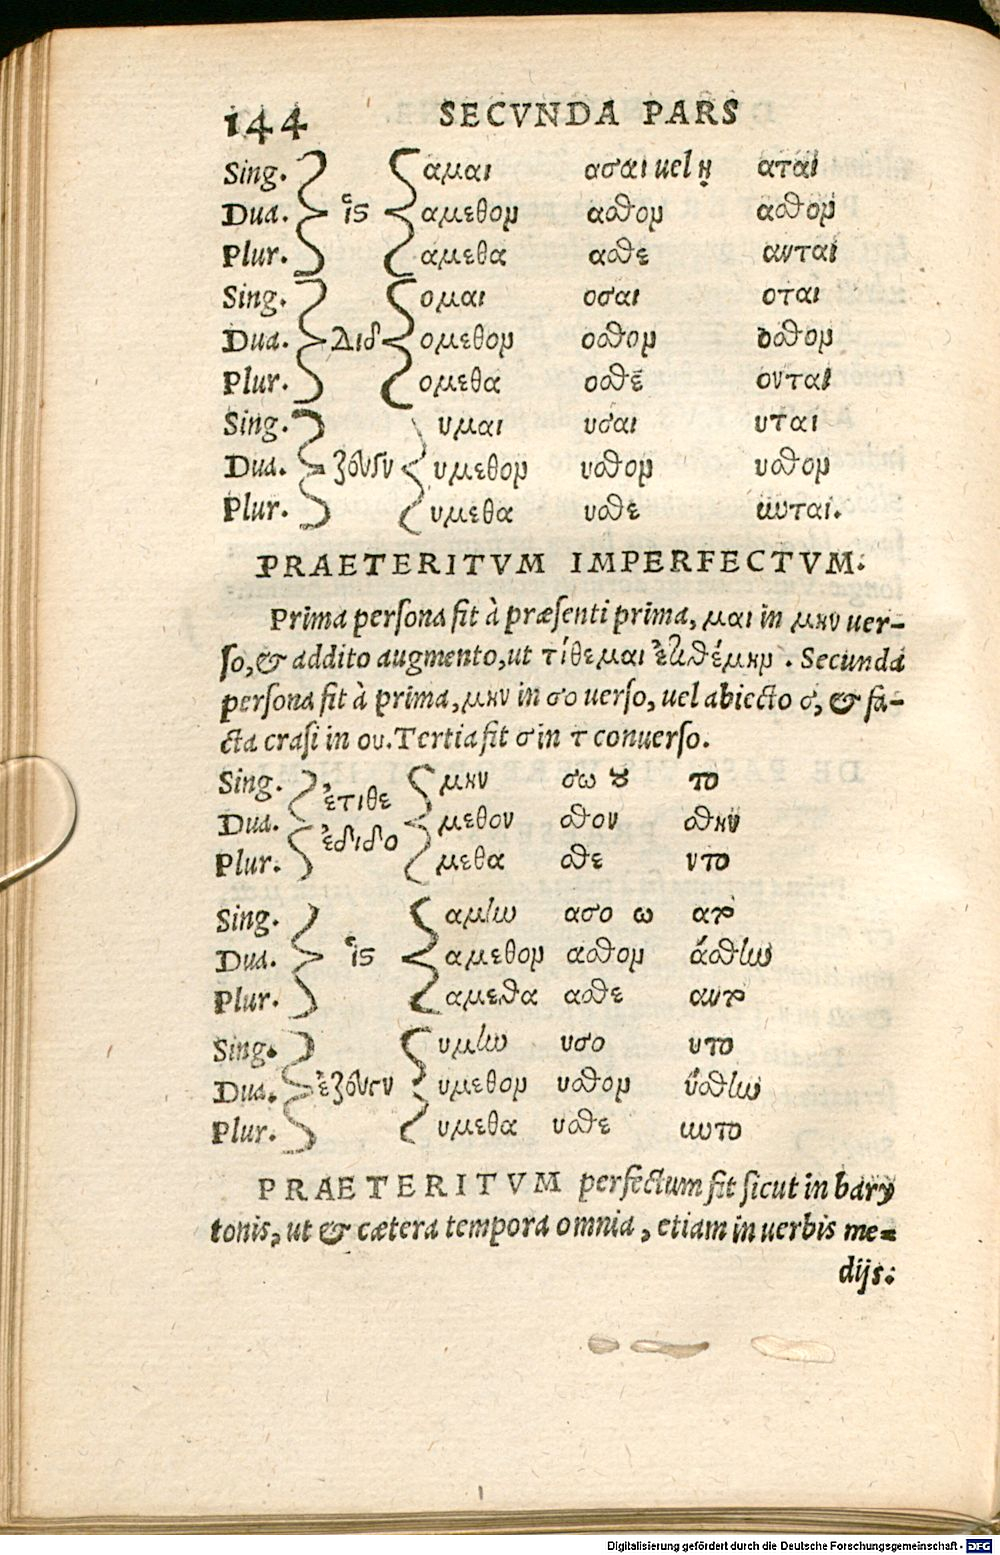 144 SECVNDA PARS
Sing. αμαι ασαι uel ῃ αται
Dua. ἱς αμεθον ασθον ασθον
Plur. αμεθα ασθε ανται
Sing. ομαι οσαι οται
Dua. Διδ ομεθον οσθον οσθον
Plur. ομεθα οσθε ονται
Sing. υμαι υσαι υται
Dua. υμεθον υσθον υσθον
Plur. υμεθα υσθε υνται.
PRAETERITVM IMPERFECTVM.
Prima persona fit à præsenti prima, μαι in μην uer-
so, & addito augmento, ut τίθεμαι ἐτιθέμην. Secunda
persona fit à prima, μην in σο uerso, uel abiecto σ, & fa-
cta crasi in ου. Tertia fit σ in τ conuerso.
Sing. ἐτιθε μην σω ȣ το
Dua. ἐδιδο μεθον σθον σθην
Plur. μεθα σθε ντο
Sing. αμην ασο ω ατο
Dua. ἱς αμεθον ασθον άσθην
Plur. αμεθα ασθε αντο
Sing. υμην υσο υτο
Dua. υμεθον υσθον ύσθην
Plur. υμεθα υσθε υντο
PRAETERITVM perfectum fit sicut in bary
tonis, ut & cætera tempora omnia, etiam in uerbis me-
dijs:
Digitalisierung gefördert durch die Deutsche Forschungsgemeinschaft - DFG